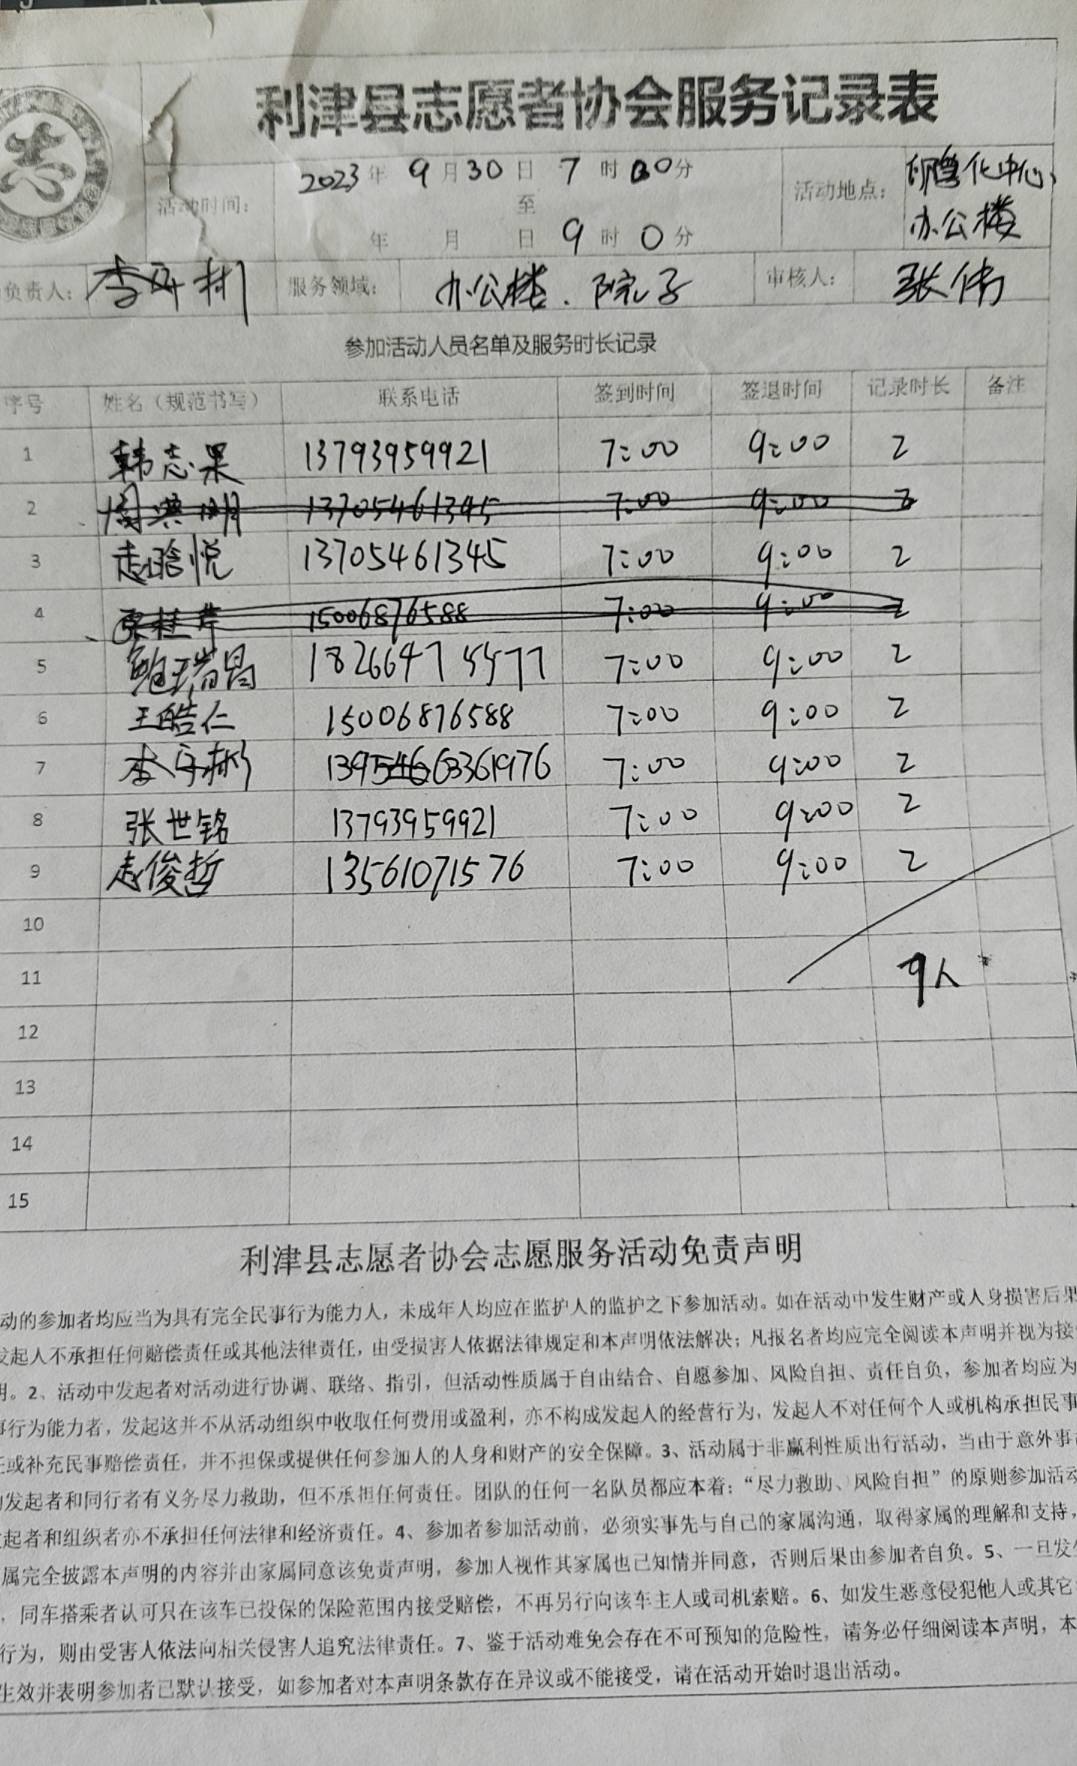 志
利津县志愿者协会服务记录表
活动时间: 2023年 9月30日 7时00分
至
年 月 日 9时 0分
活动地点: 孵化中心、
办公楼
负责人: 服务领域: 办公楼、院子 审核人: 张伟
参加活动人员名单及服务时长记录
序号 姓名（规范书写） 联系电话 签到时间 签退时间 记录时长 备注
1 韩志果 13793959921 7:00 9:00 2
2 周典明 13705461345 7:00 9:00 2
3 赵晗悦 13705461345 7:00 9:00 2
4 15006876588 7:00 9:00 2
5 鲍瑞昌 18266475577 7:00 9:00 2
6 王皓仁 15006876588 7:00 9:00 2
7 7:00 9:00 2
8 张世铭 13793959921 7:00 9:00 2
9 赵俊哲 13561071576 7:00 9:00 2
10
11 9人
12
13
14
15
利津县志愿者协会志愿服务活动免责声明
动的参加者均应当为具有完全民事行为能力人，未成年人均应在监护人的监护之下参加活动。如在活动中发生财产或人身损害后果
发起人不承担任何赔偿责任或其他法律责任，由受损害人依据法律规定和本声明依法解决；凡报名者均应完全阅读本声明并视为接
明。2、活动中发起者对活动进行协调、联络、指引，但活动性质属于自由结合、自愿参加、风险自担、责任自负，参加者均应为
事行为能力者，发起这并不从活动组织中收取任何费用或盈利，亦不构成发起人的经营行为，发起人不对任何个人或机构承担民事
任或补充民事赔偿责任，并不担保或提供任何参加人的人身和财产的安全保障。3、活动属于非赢利性质出行活动，当由于意外事
的发起者和同行者有义务尽力救助，但不承担任何责任。团队的任何一名队员都应本着：“尽力救助、风险自担”的原则参加活动
发起者和组织者亦不承担任何法律和经济责任。4、参加者参加活动前，必须实事先与自己的家属沟通，取得家属的理解和支持，
属完全披露本声明的内容并由家属同意该免责声明，参加人视作其家属也已知情并同意，否则后果由参加者自负。5、一旦发生
，同车搭乘者认可只在该车已投保的保险范围内接受赔偿，不再另行向该车主人或司机索赔。6、如发生恶意侵犯他人或其它
行为，则由受害人依法向相关侵害人追究法律责任。7、鉴于活动难免会存在不可预知的危险性，请务必仔细阅读本声明，本
生效并表明参加者已默认接受，如参加者对本声明条款存在异议或不能接受，请在活动开始时退出活动。